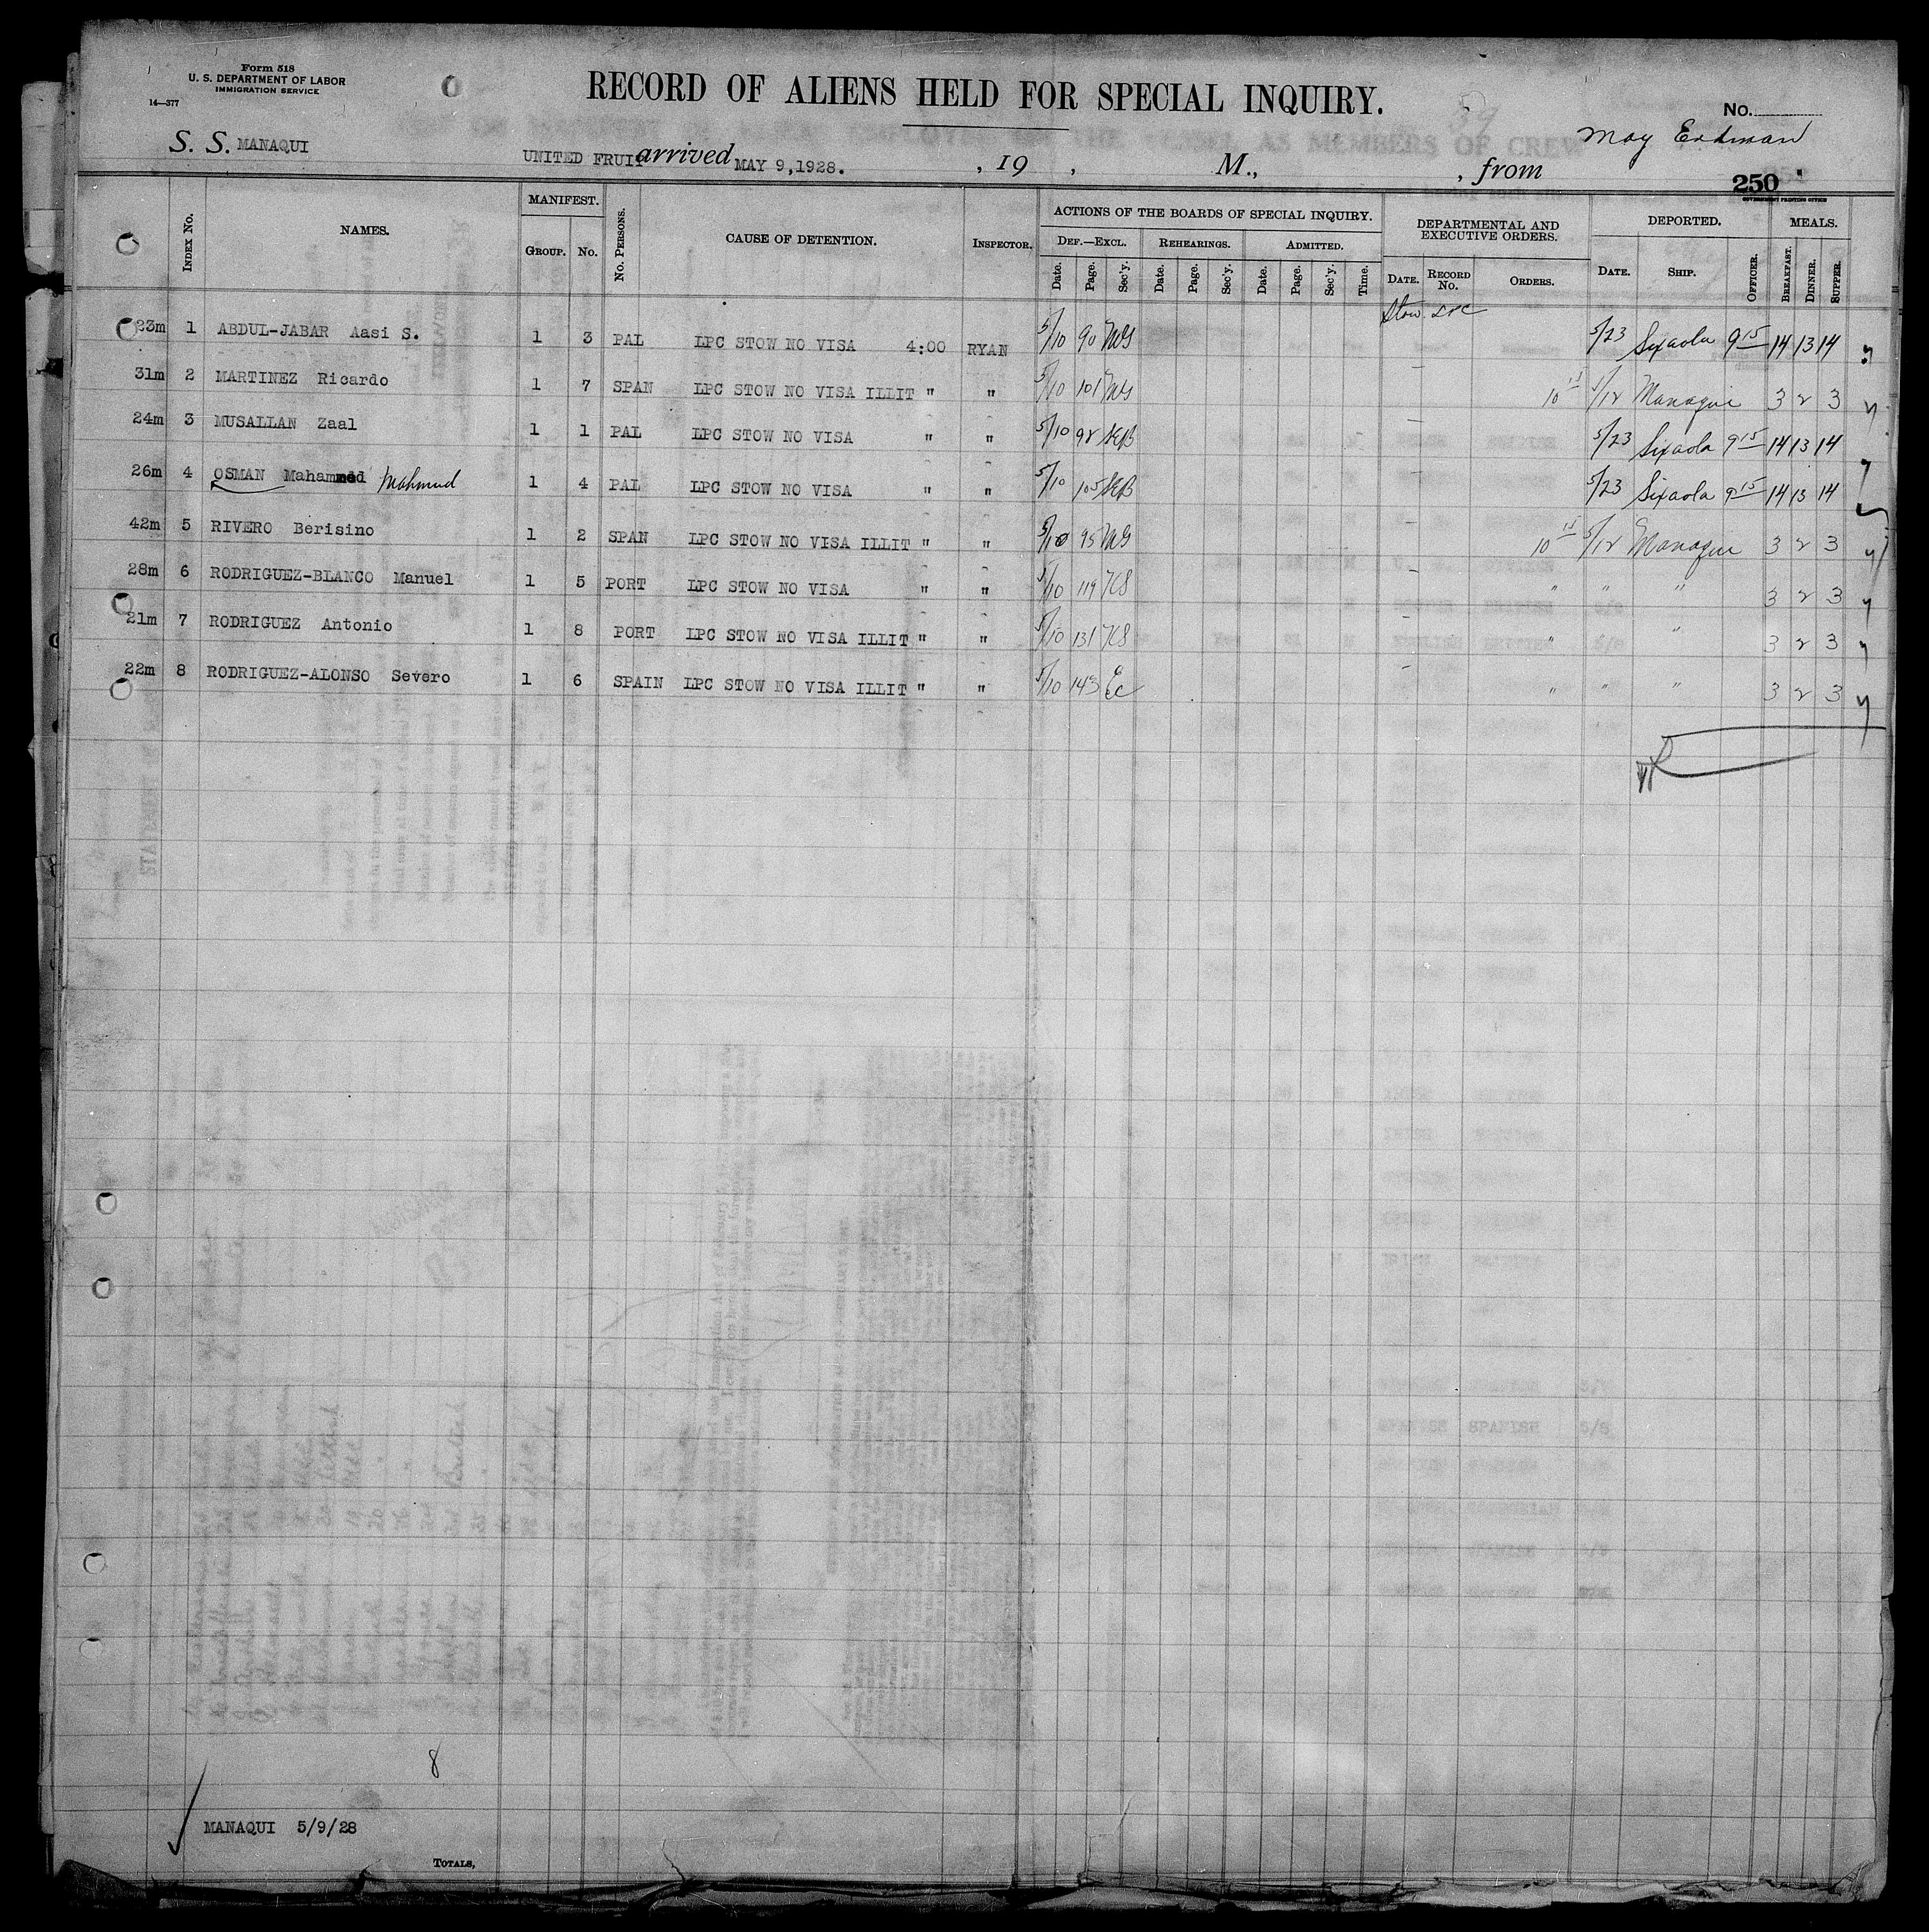 Form 518
U. S. DEPARTMENT OF LABOR
IMMIGRATION SERVICE
14—377
RECORD OF ALIENS HELD FOR SPECIAL INQUIRY.
No.
S. S. MANAQUI UNITED FRUIT arrived MAY 9,1928. , 19 , M., , from
May Erdman
250
GOVERNMENT PRINTING OFFICE
Index No. NAMES. MANIFEST. Group. No. No. Persons. CAUSE OF DETENTION. Inspector. ACTIONS OF THE BOARDS OF SPECIAL INQUIRY. DEPARTMENTAL AND EXECUTIVE ORDERS. DEPORTED. MEALS.
Def.—Excl. Rehearings. Admitted.
Date. Page. Sec'y. Date. Page. Sec'y. Date. Page. Sec'y. Time. Date. Record No. Orders. Date. Ship. Officer. Breakfast. Dinner. Supper.
Stow. LPC
23m 1 ABDUL-JABAR Aasi S. 1 3 PAL LPC STOW NO VISA 4:00 RYAN 5/10 90 MG 5/23 Sixaola 9 15 14 13 14
31m 2 MARTINEZ Ricardo 1 7 SPAN LPC STOW NO VISA ILLIT " " 5/10 101 MG 10 15 5/12 Manaqui 3 2 3
24m 3 MUSALLAN Zaal 1 1 PAL LPC STOW NO VISA " " 5/10 92 5/23 Sixaola 9 15 14 13 14
26m 4 OSMAN Mahammed Mahmud 1 4 PAL LPC STOW NO VISA " " 5/10 105 5/23 Sixaola 9 15 14 13 14
42m 5 RIVERO Berisino 1 2 SPAN LPC STOW NO VISA ILLIT " " 5/10 95 MG 10 15 5/12 Manaqui 3 2 3
28m 6 RODRIGUEZ-BLANCO Manuel 1 5 PORT LPC STOW NO VISA " " 5/10 119 KS " " " 3 2 3
21m 7 RODRIGUEZ Antonio 1 8 PORT LPC STOW NO VISA ILLIT " " 5/10 131 KS " " 3 2 3
22m 8 RODRIGUEZ-ALONSO Severo 1 6 SPAIN LPC STOW NO VISA ILLIT " " 5/10 143 Ec " " " 3 2 3
8
MANAQUI 5/9/28
Totals,